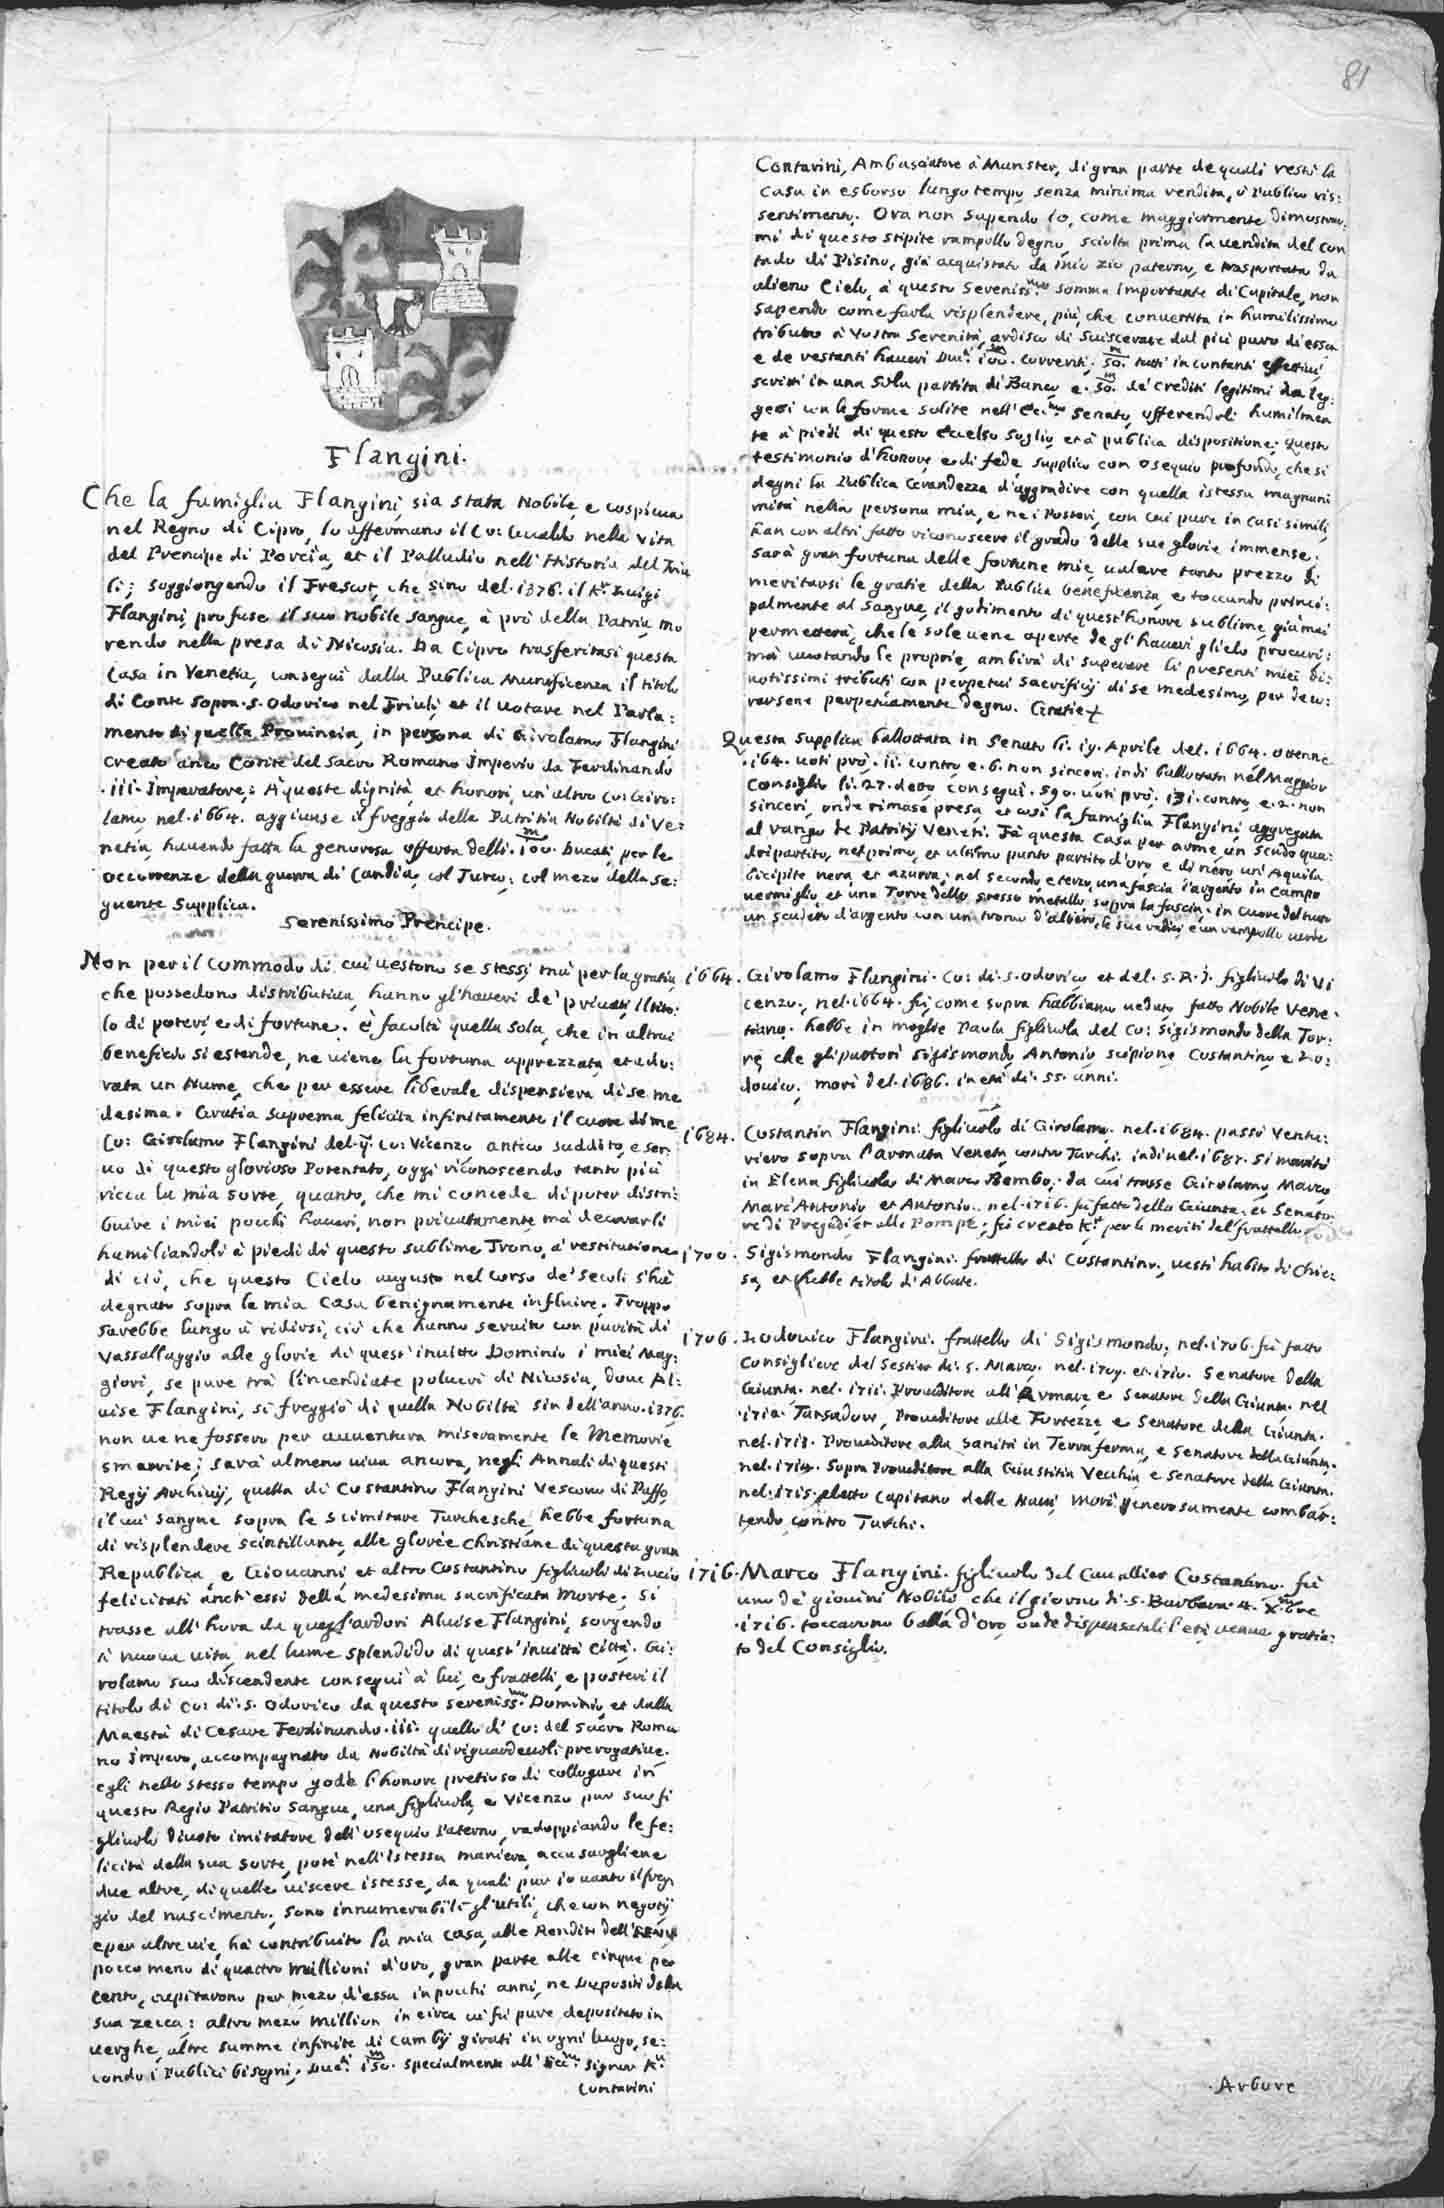 81
Flangini.
Che la famiglia Flangini sia stata Nobile, e cospicua
nel Regno di Cipro, lo affermano il Co: Ualdo nella Vita
del Prencipe di Porcia, et il Palladio nell'Historia del Friu
li; soggiongendo il Frescot, che sino del .1376. il Kr. Luigi
Flangini profuse il suo nobile sangue à prò della Patria, mo
rendo nella presa di Nicosia. Da Cipro trasferitasi questa
Casa in Venetia, conseguì dalla Publica Munificenza il titolo
di Conte sopra .S. Odorico nel Friuli, et il votare nel Parla:
mento di quella Provincia, in persona di Girolamo Flangini
creato anco Conte del Sacro Romano Imperio da Ferdinando
.iii. Imperatore; À queste dignità, et honori, un'altro Co: Giro:
lamo nel .1664. aggiunse il freggio della Patritia Nobiltà di Ve:
netia, havendo fatta la generosa offerta delli .100. m Ducati, per le
occorrenze della guerra di Candia, col Turco; col mezo della se:
guente Supplica.
Serenissimo Prencipe.
Non per il commodo di cui vestono se stessi, mà per la gratia
che possedono distributiva, hanno gl'haveri de' privati, il tito:
lo di poteri, e di fortune. è facoltà quella sola, che in altrui
beneficio si estende, ne viene la fortuna apprezzata, et ado:
rata un Nume, che per essere liberale dispensiera di se me
desima. Gratia suprema felicita infinitamente il cuore di me
Co: Girolamo Flangini del .q. Co: Vicenzo antico suddito, e ser
vo di questo glorioso Potentato, oggi riconoscendo tanto più
ricca la mia sorte, quanto, che mi concede di poter distri:
buire i miei pochi haveri, non privatamente, mà decorarli
humiliandoli à piedi di questo sublime Trono, à restitutione
di ciò, che questo Cielo augusto nel corso de' secoli s'hà
degnato sopra la mia Casa benignamente influire. Troppo
sarebbe lungo à ridirsi, ciò che hanno servito con purità di
Vassallaggio alle glorie di quest'invitto Dominio i miei Mag:
giori, se pure trà l'incendiate polveri di Nicosia, dove Al:
vise Flangini, si freggiò di quella Nobiltà sin dell'anno .1376.
non ve ne fossero per avventura miseramente le Memorie
smarrite; sarà almeno viva ancora, negli Annali di questi
Regij Archivij, quella di Costantino Flangini Vescovo di Paffo,
il cui sangue sopra le scimitare Turchesche, hebbe fortuna
di risplendere scintillante, alle glorie christiane di questa gran
Republica, e Giovanni et altro Costantino figlivoli di Zuanne
felicitati anch'essi della medesima sacrificata Morte. Si
trasse all'hora da quegl'ardori Alvise Flangini, sorgendo
à nuova vita, nel lume splendido di quest'invitta città. Gi:
rolamo suo discendente conseguì à lui, e fratelli, e posteri il
titolo di Co: di .S. Odorico da questo sereniss.mo Dominio, et dalla
Maestà di Cesare Ferdinando .iii. quello di Co: del Sacro Roma
no Impero, accompagnato da Nobiltà di riguardevoli prerogative.
egli nello stesso tempo godè l'honore pretioso di collogare in
questo Regio Patritio Sangue, una figlivola, e Vicenzo pur suo fi
glivolo divoto imitatore dell'osequio Paterno, radoppiando le fe:
licità della sua sorte, potè nell'istessa maniera, accasargliene
due altre, di quelle viscere istesse, da quali pur io vanto il freg
gio del nascimento. Sono innumerabili gl'utili, che con negotij
e per altre vie, hà contribuito la mia casa, alle Rendite dell'
pocco meno di quattro millioni d'oro, gran parte alle cinque per
cento, capitarono per mezo d'essa in pochi anni, ne Depositi della
sua zecca: altro mezo million in circa vi fù pure depositato in
verghe, altre summe infinite di cambij girati in ogni luogo, se:
condo i Publici bisogni, Duc.ti 150. m specialmente all'Ecc.mo Signor Kr.
Contarini
Contarini, Ambasciatore à Munster, di gran parte de quali restò la
casa in esborso lungo tempo, senza minima vendita, ò Publico ris:
sentimento. Ora non sapendo io, come maggiormente dimostrar:
mi di questo stipite rampollo degno, sciolta prima la vendita del con
tado di Pisino, già acquistato da mio zio paterno, e trasportata da
alieno Cielo, à questo Sereniss.mo somma importante di Capitale, non
sapendo come farla risplendere, più, che convertita in humilissimo
tributo à Vostra Serenità, ardisco di sviscerare dal più puro di essa
e de restanti haveri Duc.ti 100. m correnti. 50. m tutti in contanti effettivi
scritti in una sola partita di Banco, e .50. m de' crediti legitimi da leg:
gersi con le forme solite nell'Ecc.mo Senato, offerendoli humilmen
te à piedi di questo Eccelso Soglio, et à publica dispositione. Questo
testimonio d'honore, e di fede, supplico con osequio profondo, che si
degni la Publica Grandezza d'aggradire con quella istessa magnani
mità nella persona mia, e ne i Posteri, con cui pure in casi simili,
han con altri fatto riconoscere il grado delle sue glorie immense.
sarà gran fortuna delle fortune mie, valere tanto prezzo di
meritarsi le gratie della Publica beneficenza, e toccando princi:
palmente al sangue, il godimento di quest'honore sublime, già mai
permetterà, che le sole vene aperte de gl'haveri glielo procuri:
mà vuotando le proprie, ambirà di superare li presenti miei di:
votissimi tributi con perpetui sacrificij di se medesimo, per deco:
rarsene perpetuamente degno. Gratie.
Questa supplica ballottata in Senato li .19. Aprile del .1664. ottenne
.164. voti prò .11. contro, e .6. non sinceri. indi ballottata nel Maggior
Consiglio li .27. detto conseguì .590. voti prò .131. contro, e .2. non
sinceri, onde rimase presa, et così la famiglia Flangini aggregata
al rango de Patritij Veneti. Fà questa Casa per arme, un scudo qua:
dripartito, nel primo, et ultimo punto partito d'oro, e di nero un'Aquila
bicipite nera, et azurra; nel secondo, e terzo, una fascia d'argento in campo
vermiglio, et una Torre dello stesso metallo sopra la fascia. in cuore del tutto
un scudetto d'argento con un tronco d'albero, le sue radici, e un rampollo verde
1664. Girolamo Flangini. Co: di .S. Odorico, et del .S.R.I. figlivolo di Vi
cenzo, nel .1664. fù, come sopra habbiamo veduto, fatto Nobile Vene:
tiano. hebbe in moglie Paola figlivola del Co: Sigismondo della Tor:
re, che gli partorì Sigismondo, Antonio, Scipione, Costantino, e Lo:
dovico. morì del .1686. in età di .55. anni.
1684. Costantin Flangini figlivolo di Girolamo. nel .1684. passò Ventu:
riero sopra l'armata Veneta contro Turchi. indi nel .1687. si maritò
in Elena figlivola di Marco Bembo, da cui trasse Girolamo, Marco,
Marc'Antonio et Antonio. nel .1716. fù fatto della Giunta, et Senato
re di Pregadi, et alle Pompe. fù creato Kr. per li meriti del frattello
1700. Sigismondo Flangini. frattello di Costantino, vestì habito di Chie:
sa, et hebbe titolo d'Abbate.
1706. Lodovico Flangini. frattello di Sigismondo. nel .1706. fù fatto
Consigliere del Sestier di .S. Marco. nel .1709. et .1710. Senatore della
Giunta. nel .1711. Proveditore all'Armar, e Senatore della Giunta. nel
.1712. Tansadore, Proveditore alle Fortezze, e Senatore della Giunta.
nel .1713. Proveditore alla Sanità in Terra ferma, e Senatore della Giunta.
nel .1714. Sopra Proveditore alla Giustitia Vecchia, e Senatore della Giunta.
nel .1715. eletto Capitano delle Navi, morì generosamente combat:
tendo contro Turchi.
1716. Marco Flangini. figlivolo del Cavallier Costantino. fù
uno de' giovini Nobili, che il giorno di .S. Barbara .4. X.bre
.1716. toccarono balla d'oro, onde dispensatali l'età, venne gratia:
to del Consiglio.
.Arbore